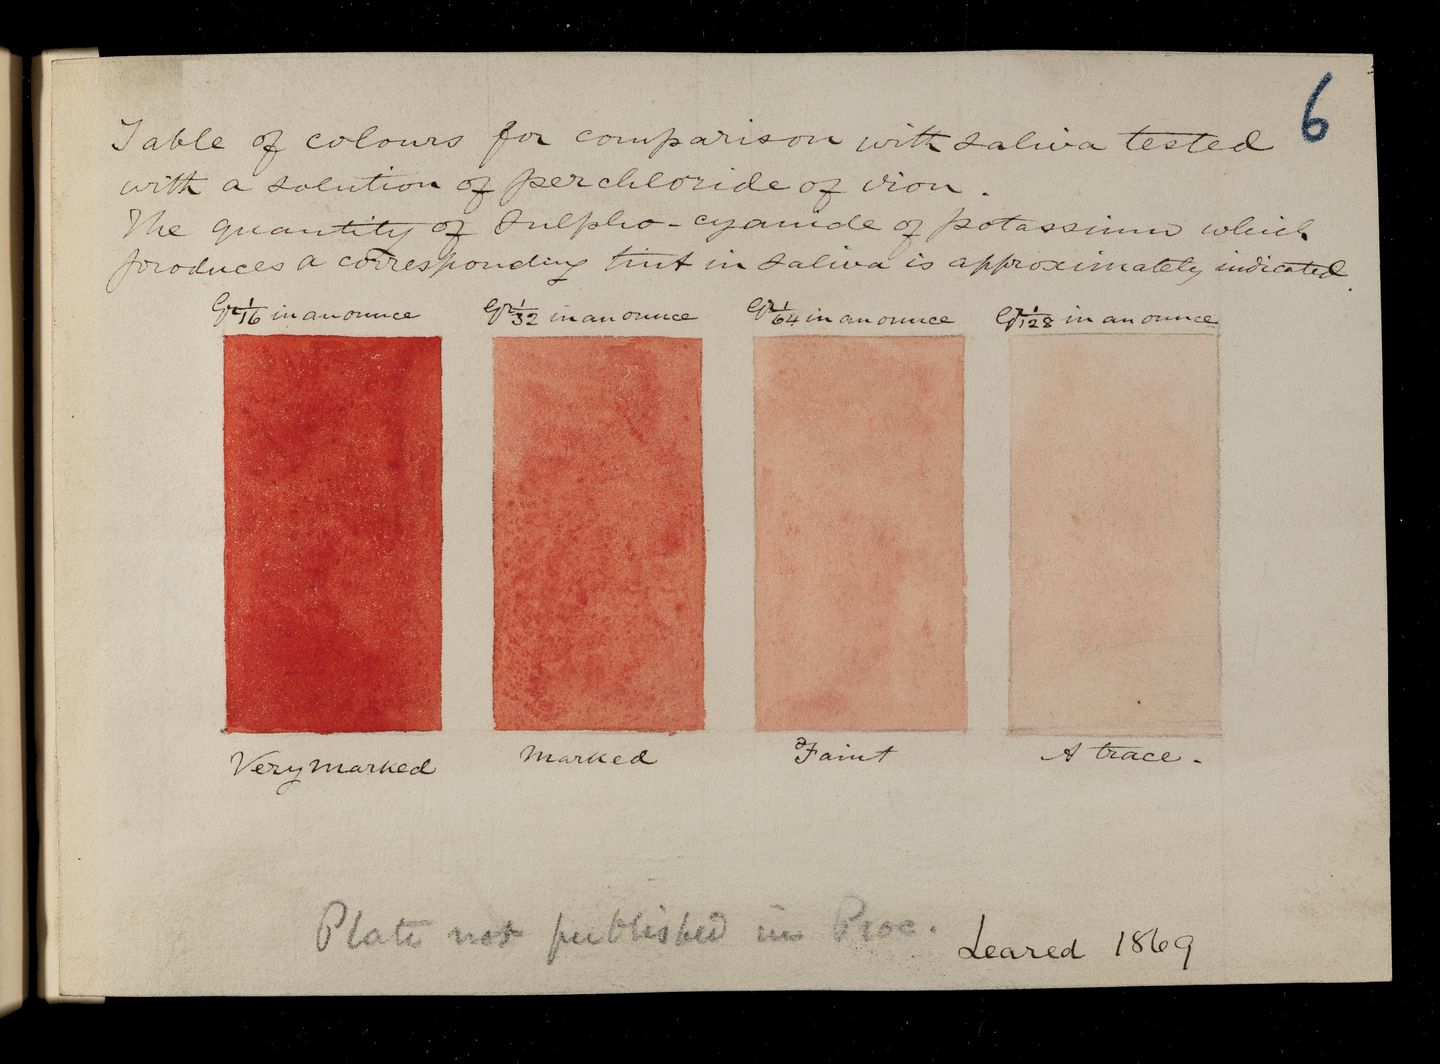 6
Table of colours for comparison with saliva tested
with a solution of perchloride of iron.
The quantity of Sulpho-cyanide of potassium which
produces a corresponding tint in saliva is approximately indicated.
Gr 1/16 in an ounce
Gr 1/32 in an ounce
Gr 1/64 in an ounce
Gr 1/128 in an ounce
Very marked
Marked
Faint
A trace.
Plate not published in Proc.
Leared 1869